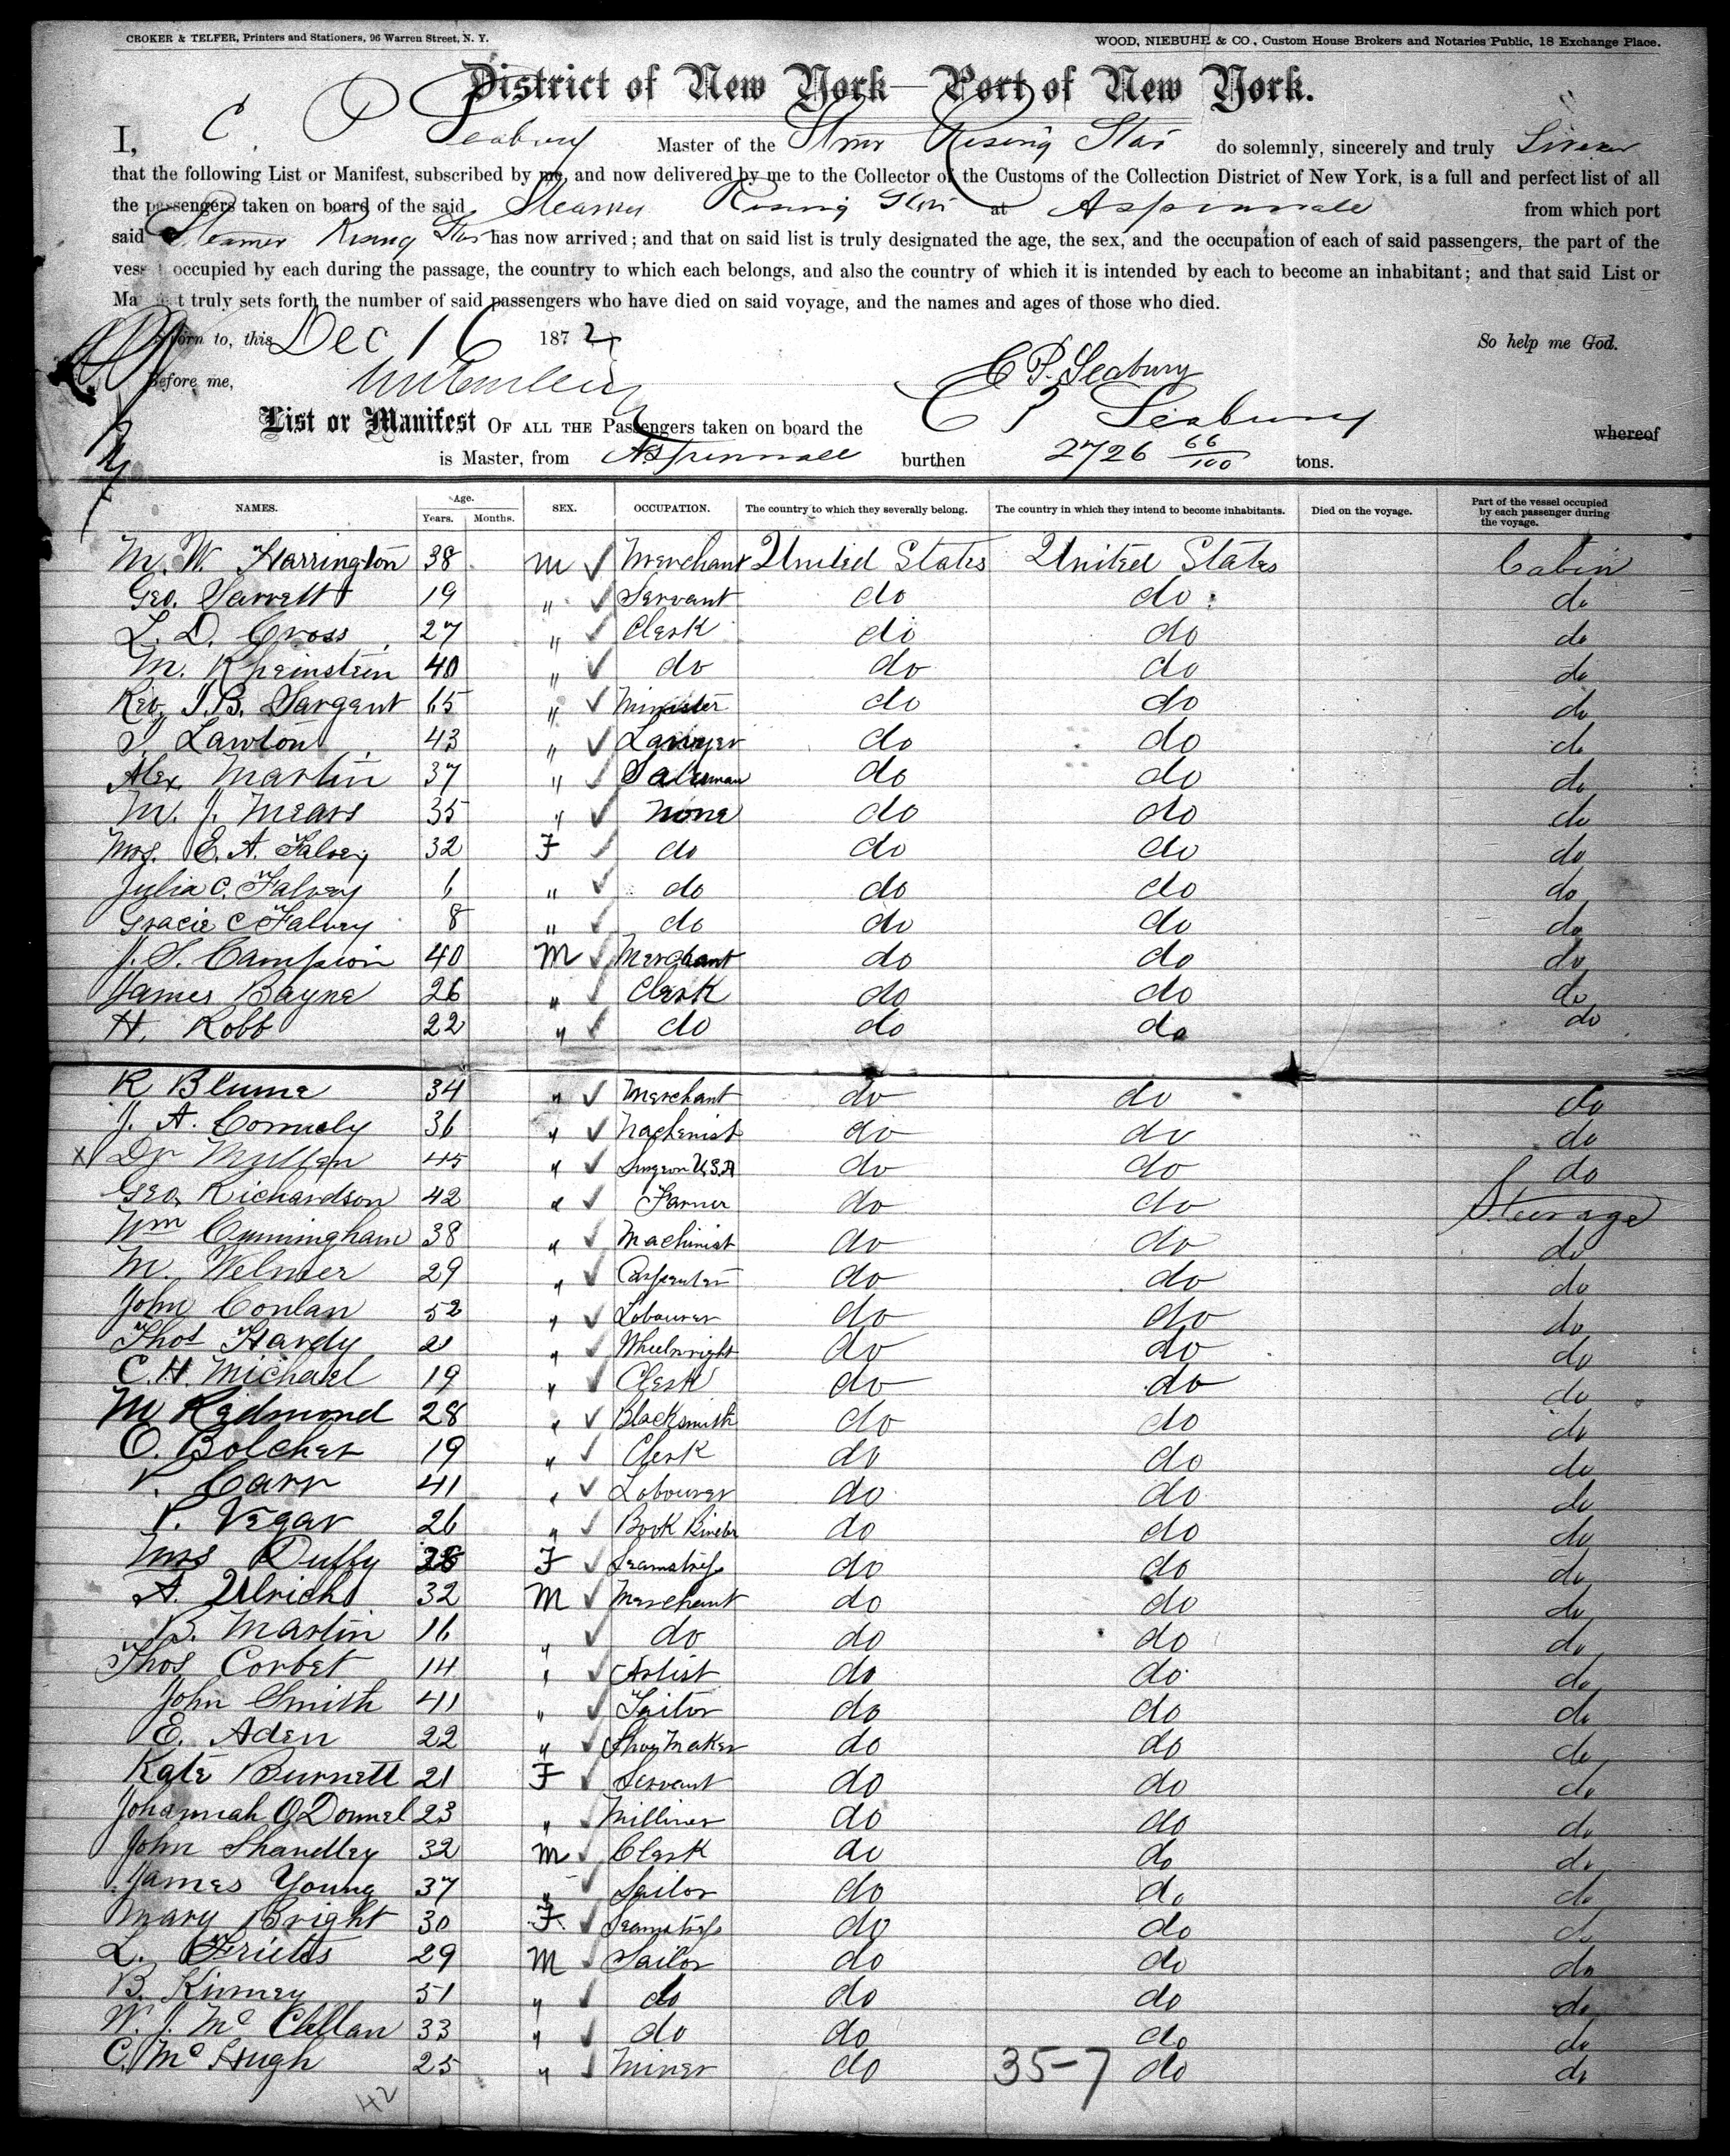 CROKER & TELFER, Printers and Stationers, 96 Warren Street, N. Y. WOOD, NIEBUHR & CO., Custom House Brokers and Notaries Public, 18 Exchange Place.
District of New York—Port of New York.
I, C. P. Seabury Master of the Stmr Rising Star do solemnly, sincerely and truly
that the following List or Manifest, subscribed by me, and now delivered by me to the Collector of the Customs of the Collection District of New York, is a full and perfect list of all
the passengers taken on board of the said Steamer Rising Star at Aspinwall from which port
said Steamer Rising Star has now arrived; and that on said list is truly designated the age, the sex, and the occupation of each of said passengers, the part of the
vessel occupied by each during the passage, the country to which each belongs, and also the country of which it is intended by each to become an inhabitant; and that said List or
Manifest truly sets forth the number of said passengers who have died on said voyage, and the names and ages of those who died.
Sworn to, this Dec 16 1872 So help me God.
Before me, C P. Seabury
List or Manifest OF ALL THE Passengers taken on board the C P Seabury whereof
is Master, from Aspinwall burthen 2726 66/100 tons.
NAMES. Age. Years. Months. SEX. OCCUPATION. The country to which they severally belong. The country in which they intend to become inhabitants. Died on the voyage. Part of the vessel occupied by each passenger during the voyage.
M. W. Harrington 38 M ✓ Merchant United States United States Cabin
Geo. Garrett 19 " ✓ Servant do do do
L. D. Cross 27 " ✓ Clerk do do do
M. Rheinstein 40 " ✓ do do do do
Rev. T. B. Sargent 65 " ✓ Minister do do do
J. Lawton 43 " ✓ Lawyer do do do
Alex. Martin 37 " ✓ Salesman do do do
M. J. Mears 35 " ✓ None do do do
Mrs. E. A. Falvey 32 F ✓ do do do do
Julia C. Falvey 6 " ✓ do do do do
Gracie C Falvey 8 " ✓ do do do do
J. S. Campion 40 M ✓ Merchant do do do
James Bayne 26 " ✓ Clerk do do do
H. Robb 22 " ✓ do do do do
R Blume 34 " ✓ Merchant do do do
J. A. Cornuely 36 " ✓ Machenist do do do
x Dr Mullen 45 " ✓ Surgeon U.S.A do do do
Geo. Richardson 42 " ✓ Farmer do do Steerage
Wm Cunningham 38 " ✓ Machinist do do do
M. Welmer 29 " ✓ Carpenter do do do
John Conlan 52 " ✓ Labourer do do do
Thos Hardy 21 " ✓ Wheelwright do do do
C. H. Michael 19 " ✓ Clerk do do do
M Redmond 28 " ✓ Blacksmith do do do
O. Bolcher 19 " ✓ Clerk do do do
P. Carr 41 " ✓ Labourer do do do
P. Vegar 26 " ✓ Book Binder do do do
Mrs Duffy 28 F ✓ Seamstress do do do
A. Ulrich 32 M ✓ Merchant do do do
B. Martin 16 " ✓ do do do do
Thos Corbet 14 " ✓ Artist do do do
John Smith 41 " ✓ Tailor do do do
E. Aden 22 " ✓ Shoe Maker do do do
Kate Burnett 21 F ✓ Servant do do do
Johannah O'Donnel 23 " ✓ Milliner do do do
John Shandley 32 M ✓ Clerk do do do
James Young 37 " ✓ Sailor do do do
Mary Bright 30 F ✓ Seamstress do do do
L. Frietis 29 M ✓ Sailor do do do
B. Kinney 51 " ✓ do do do do
W. J. Mc Clellan 33 " ✓ do do do do
C. Mc Hugh 25 " ✓ Miner do 35-7 do do
42